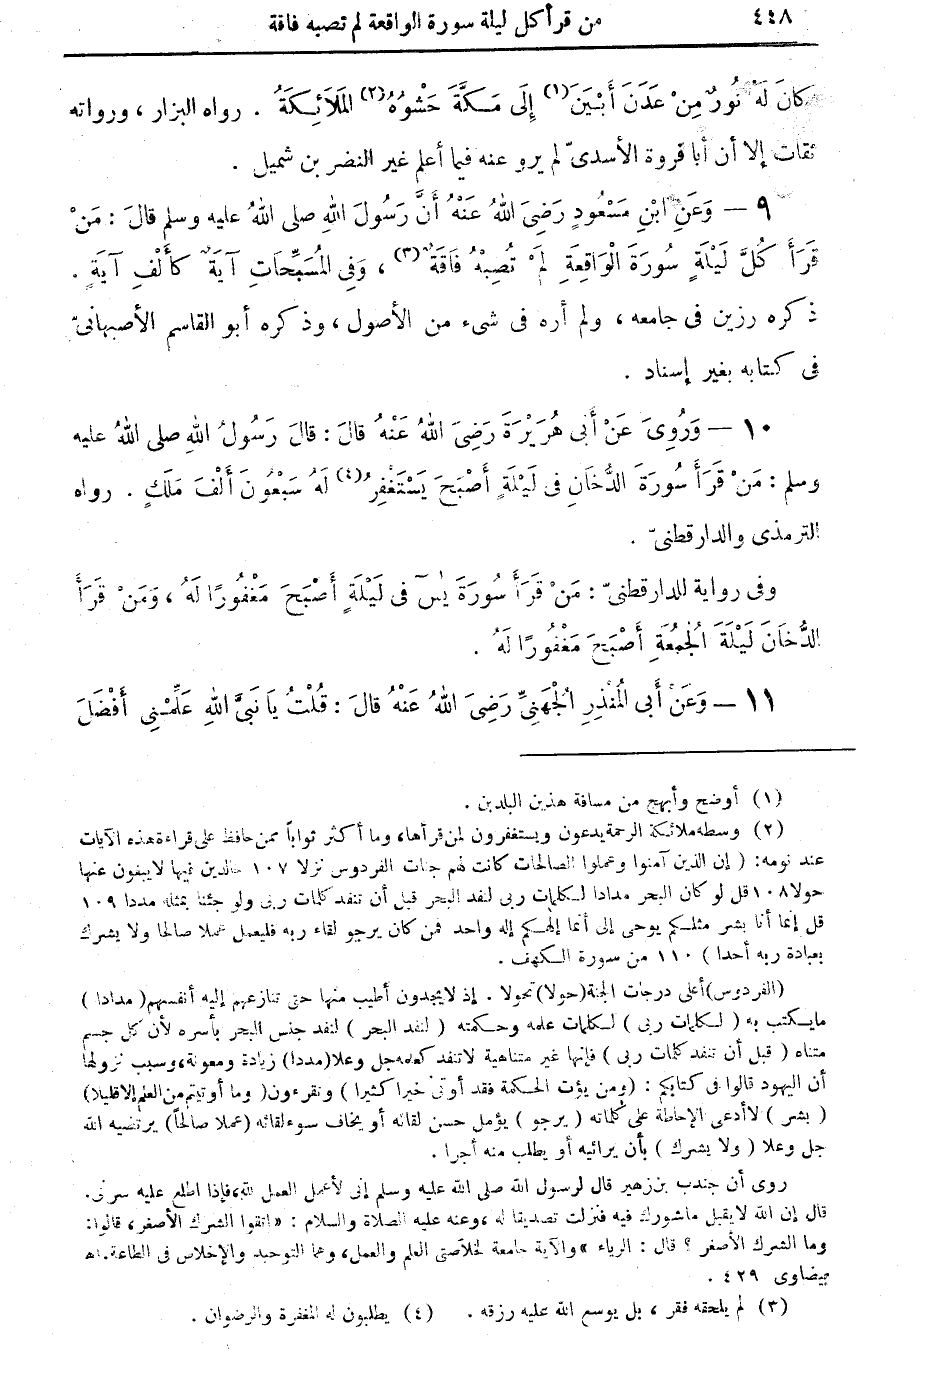 ٤٤٨ من قرأ كل ليلة سورة الواقعة لم تصبه فاقة
كانَ لَهُ نُورٌ مِنْ عَدَنَ أَبْيَنَ (١) إِلَى مَكَّةَ حَشْوُهُ (٢) المَلَائِكَةُ . رواه البزار ، ورواته
ثقات إلا أن أبا قروة الأسدىّ لم يرو عنه فيما أعلم غير النضر بن شميل .
٩ – وَعَنِ ابْنِ مَسْعُودٍ رَضِىَ اللهُ عَنْهُ أَنَّ رَسُولَ اللهِ صلى اللهُ عليه وسلم قالَ : مَنْ
قَرَأَ كُلَّ لَيْلَةٍ سُورَةَ الْوَاقِعَةِ لَمْ تُصِبْهُ فَاقَةٌ (٣) ، وَفِى المُسَبِّحَاتِ آيَةٌ كَأَلْفِ آيَةٍ .
ذكره رزين فى جامعه ، ولم أره فى شىء من الأصول ، وذكره أبو القاسم الأصبهانىّ
فى كتابه بغير إسناد .
١٠ – وَرُوِىَ عَنْ أَبِى هُرَيْرَةَ رَضِىَ اللهُ عَنْهُ قالَ : قالَ رَسُولُ اللهِ صلى اللهُ عليه
وسلم : مَنْ قَرَأَ سُورَةَ الدُّخَانِ فى لَيْلَةٍ أَصْبَحَ يَسْتَغْفِرُ (٤) لَهُ سَبْعُونَ أَلْفَ مَلَكٍ . رواه
الترمذى والدارقطنىّ .
وفى رواية للدارقطنىّ : مَنْ قَرَأَ سُورَةَ يٰسٓ فى لَيْلَةٍ أَصْبَحَ مَغْفُورًا لَهُ ، وَمَنْ قَرَأَ
الدُّخَانَ لَيْلَةَ الْجُمُعَةِ أَصْبَحَ مَغْفُورًا لَهُ .
١١ – وَعَنْ أَبِى المُنْذِرِ الْجُهَنِىِّ رَضِىَ اللهُ عَنْهُ قالَ : قُلْتُ يَا نَبِىَّ اللهِ عَلِّمْنِى أَفْضَلَ
(١) أوضح وأبهج من مسافة هذين البلدين .
(٢) وسطه ملائكة الرحمة يدعون ويستغفرون لمن قرأها، وما أكثر ثواباً ممن حافظ على قراءة هذه الآيات
عند نومه: ( إن الذين آمنوا وعملوا الصالحات كانت لهم جنات الفردوس نزلا ١٠٧ خالدين فيها لايبغون عنها
حولا ١٠٨ قل لو كان البحر مدادا لكلمات ربى لنفد البحر قبل أن تنفد كلمات ربى ولو جئنا بمثله مددا ١٠٩
قل إنما أنا بشر مثلكم يوحى إلى أنما إلهكم إله واحد فمن كان يرجو لقاء ربه فليعمل عملا صالحا ولا يشرك
بعبادة ربه أحدا ) ١١٠ من سورة الكهف .
(الفردوس) أعلى درجات الجنة (حولا) تحولا . إذ لايجدون أطيب منها حتى تنازعهم إليه أنفسهم ( مدادا )
مايكتب به ( لكلمات ربى ) لكلمات علمه وحكمته ( لنفد البحر ) لنفد جنس البحر بأسره لأن كل جسم
متناه ( قبل أن تنفد كلمات ربى ) فإنها غير متناهية لاتنفد كعلمه جل وعلا (مددا) زيادة ومعونة، وسبب نزولها
أن اليهود قالوا فى كتابكم : (ومن يؤت الحكمة فقد أوتى خيرا كثيرا ) وتقرءون ( وما أوتيتم من العلم إلا قليلا)
( بشر ) لاأدعى الإحاطة على كلماته ( يرجو ) يؤمل حسن لقائه أو يخاف سوء لقائه (عملا صالحاً) يرتضيه الله
جل وعلا ( ولا يشرك ) بأن يرائيه أو يطلب منه أجرا .
روى أن جندب بن زهير قال لرسول الله صلى الله عليه وسلم إنى لأعمل العمل لله، فإذا اطلع عليه سرنى.
قال إن الله لايقبل ماشورك فيه فنزلت تصديقا له ، وعنه عليه الصلاة والسلام : « اتقوا الشرك الأصغر ، قالوا:
وما الشرك الأصغر ؟ قال : الرياء » والآية جامعة لخلاصتى العلم والعمل، وهما التوحيد والإخلاص فى الطاعة. اهـ
بيضاوى ٤٢٩ .
(٣) لم يلحقه فقر ، بل يوسع الله عليه رزقه . (٤) يطلبون له المغفرة والرضوان .